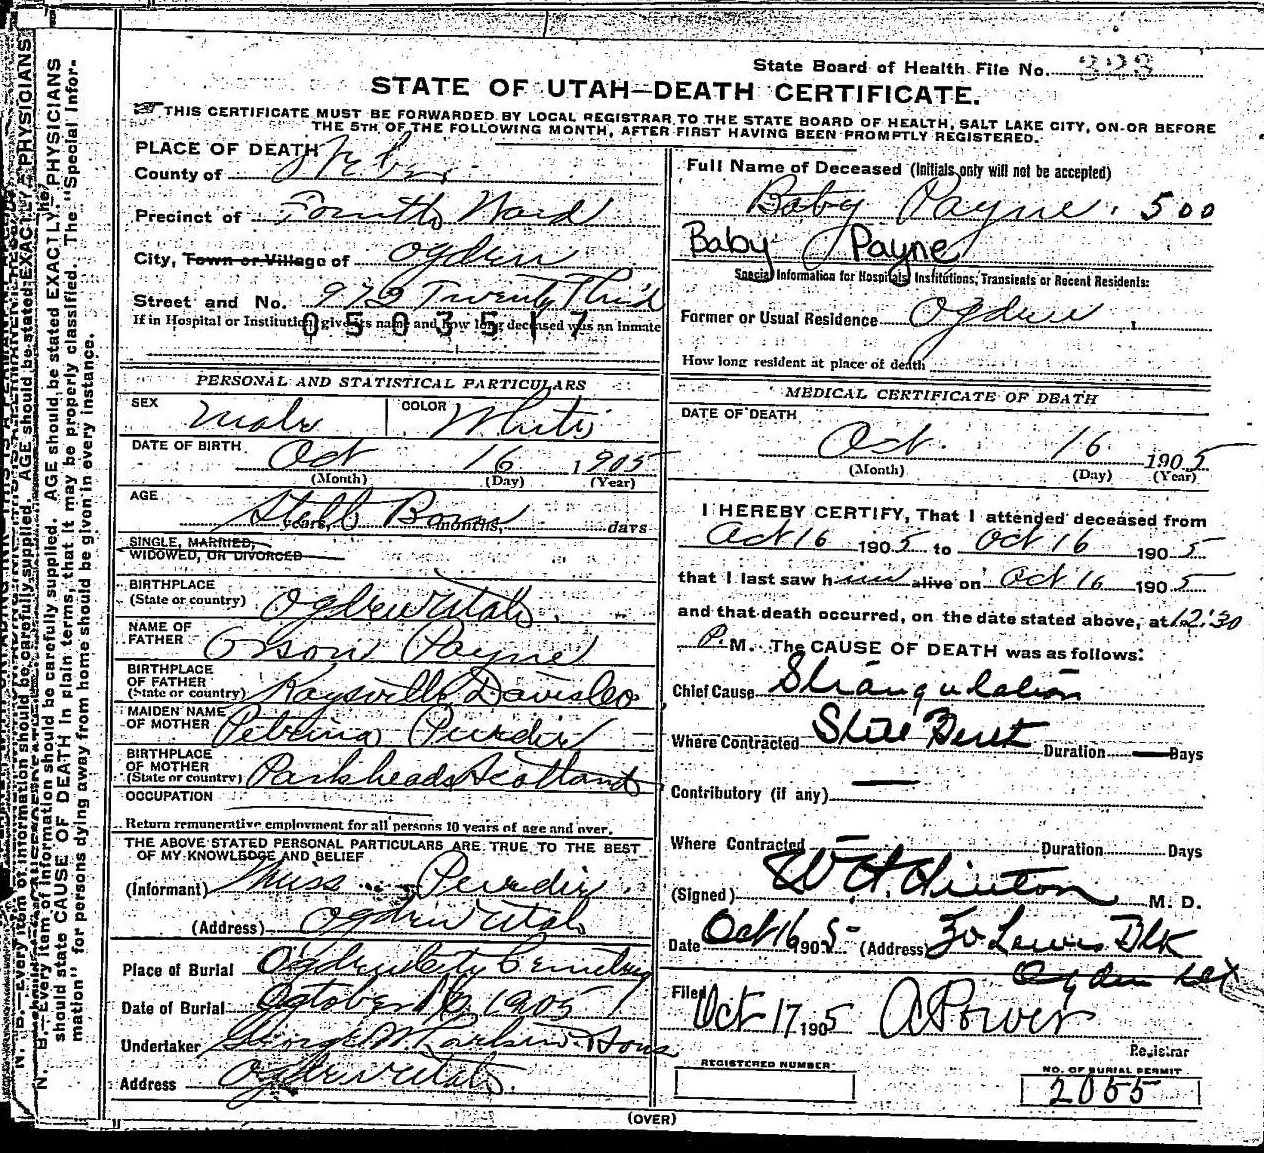 State Board of Health File No. 323
STATE OF UTAH—DEATH CERTIFICATE.
THIS CERTIFICATE MUST BE FORWARDED BY LOCAL REGISTRAR TO THE STATE BOARD OF HEALTH, SALT LAKE CITY, ON OR BEFORE
THE 5TH OF THE FOLLOWING MONTH, AFTER FIRST HAVING BEEN PROMPTLY REGISTERED.
PLACE OF DEATH
County of Weber
Precinct of Fourth Ward
City, Town or Village of Ogden
Street and No. 972 Twenty Third
If in Hospital or Institution give its name and how long deceased was an inmate
0503517
PERSONAL AND STATISTICAL PARTICULARS
SEX Male COLOR White
DATE OF BIRTH Oct 16 1905
(Month) (Day) (Year)
AGE Still Born
years, months, days
SINGLE, MARRIED,
WIDOWED, OR DIVORCED
BIRTHPLACE
(State or country) Ogden Utah
NAME OF
FATHER Orson Payne
BIRTHPLACE
OF FATHER
(State or country) Kaysville Davis Co
MAIDEN NAME
OF MOTHER Petrina Purdie
BIRTHPLACE
OF MOTHER
(State or country) Parkheads Scotland
OCCUPATION
Return remunerative employment for all persons 10 years of age and over.
THE ABOVE STATED PERSONAL PARTICULARS ARE TRUE TO THE BEST
OF MY KNOWLEDGE AND BELIEF
(Informant) Miss Purdie
(Address) Ogden Utah
Place of Burial Ogden City Cemetery
Date of Burial October 16 1905
Undertaker George W. Larkin & Sons
Address Ogden Utah
Full Name of Deceased (Initials only will not be accepted)
Baby Payne. 500
Baby Payne
Special Information for Hospitals, Institutions, Transients or Recent Residents:
Former or Usual Residence Ogden
How long resident at place of death
MEDICAL CERTIFICATE OF DEATH
DATE OF DEATH
Oct. 16 1905
(Month) (Day) (Year)
I HEREBY CERTIFY, That I attended deceased from
Oct 16 1905 to Oct 16 1905
that I last saw him alive on Oct 16 1905
and that death occurred, on the date stated above, at 12:30
P. M. The CAUSE OF DEATH was as follows:
Chief Cause Strangulation
Where Contracted Still Birth Duration — Days
Contributory (if any)
Where Contracted Duration Days
(Signed) W H. Hinton M. D.
Date Oct 16 1905 (Address) Lewis Blk
Ogden
Filed Oct 17, 1905 A Power
Registrar
REGISTERED NUMBER
NO. OF BURIAL PERMIT
2055
(OVER)
N. B.—Every item of information should be carefully supplied. AGE should be stated EXACTLY. PHYSICIANS
should state CAUSE OF DEATH in plain terms, that it may be properly classified. The "Special Infor-
mation" for persons dying away from home should be given in every instance.